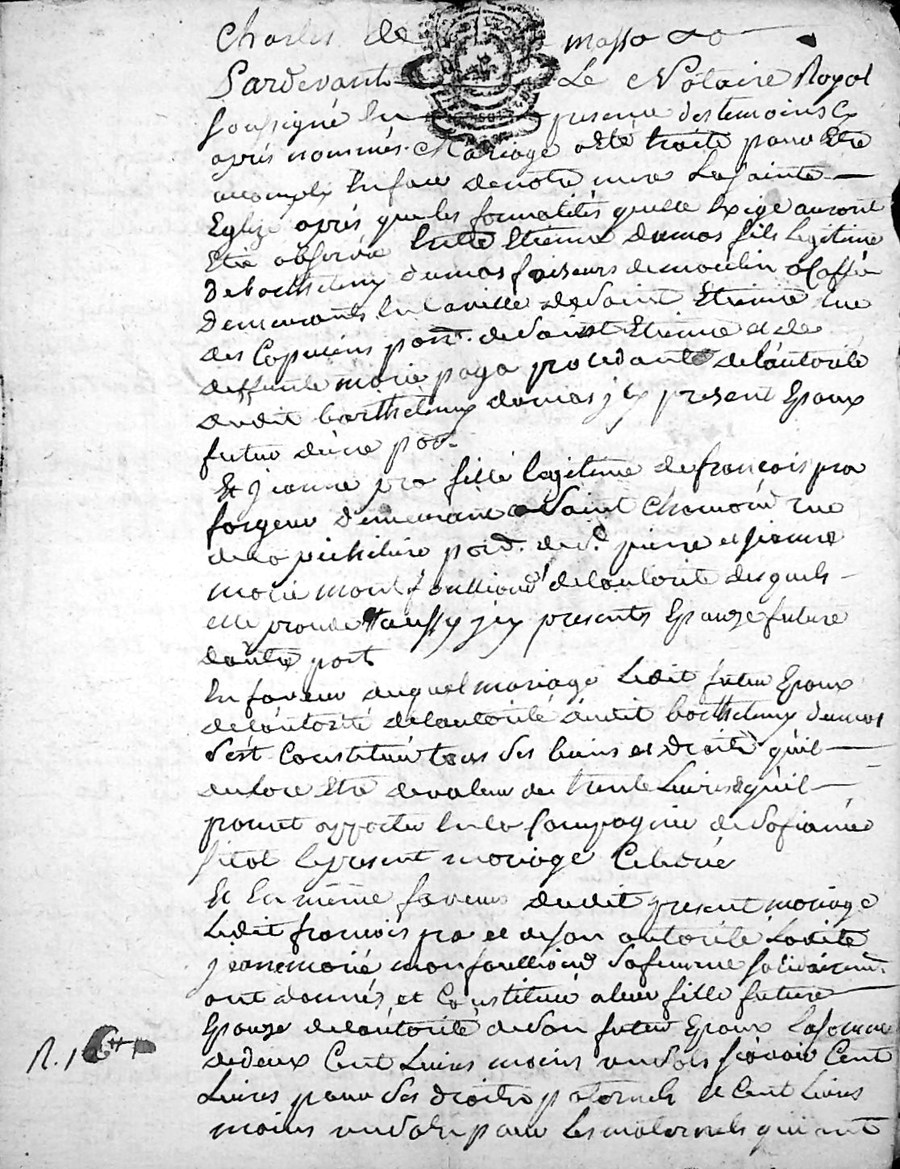 Charles de massa
Pardevant Le Notaire Royal
soussigné En presence des temoins Cy
aprés nommés. Mariage a eté traité pour Etre
accomply En face de notre mere La sainte
Eglize aprés que les formalités quelle Exige auront
Eté observée Entre Etienne dumas fils legitime
de barthelemy dumas faiseurs de moulin a Caffé
demeurants En la ville de Saint Etienne rue
des Capucins parr. de Saint Etienne et de
deffunte marie paga procedant de lautorité
dudit barthelemy dumas jcy present Epoux
futur dúne part
Et jeanne pra fille legitime de françois pra
forgeur demeurant a Saint Chamond rue
de la parr. de St. pierre et jeanne
marie montfoullioud de lautorité desquels
elle procede aussy jcy presents Epouze future
dautre part
En faveur duquel mariage Ledit futur Epoux
de lautorité de lautorité dudit barthelemy dumas
sést Constitué tous ses biens et droits quil
declare Etre de valeur de trente Livres et quil
promet apporter En la Compagnie de sa fiancée
sitot le present mariage Celebré
Et En même faveur dudit present mariage
Ledit françois pra et de son autorité Ladite
jeanne marie monfoullioud sa femme solidairemt.
ont donnés et Constitué a leur fille future
Epouze de lautorité de son futur Epoux La somme
de deux Cent Livres moins un sols sçavoir Cent
Livres pour ses droits paternels Et Cent Livres
moins un sols pour Les maternels qui ont